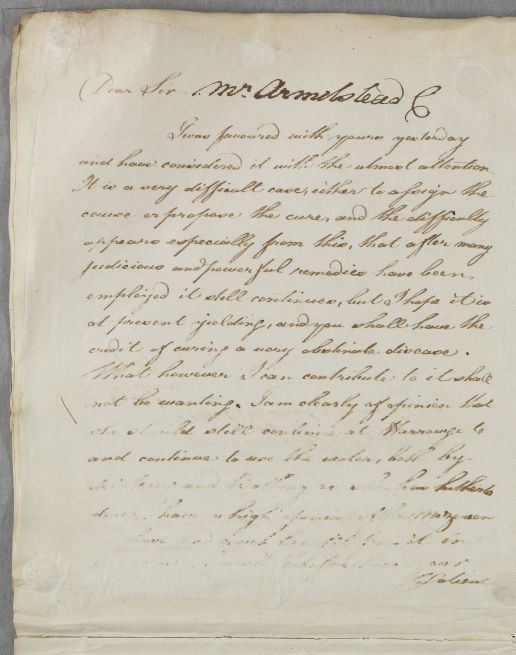 Dear Sir. Mrs. Armitstead C
I was favoured with yours yesterday
and have considered it with the utmost attention
It is a very difficult case, either to assign the
cause or propose the cure, and the difficulty
appears especially from this, that after many
judicious and powerful remedies have been
employed it still continues, but I hope it is
at present yielding, and you shall have the
credit of curing a very obstinate disease.
What however I can contribute to it shall
not be wanting. I am clearly of opinion that
she should still continue at Harrowgate
and continue to use the water, both by
drinking and bathing as she has hitherto
done. I have a high opinion of the
have had much benefit from it in
your
Patient